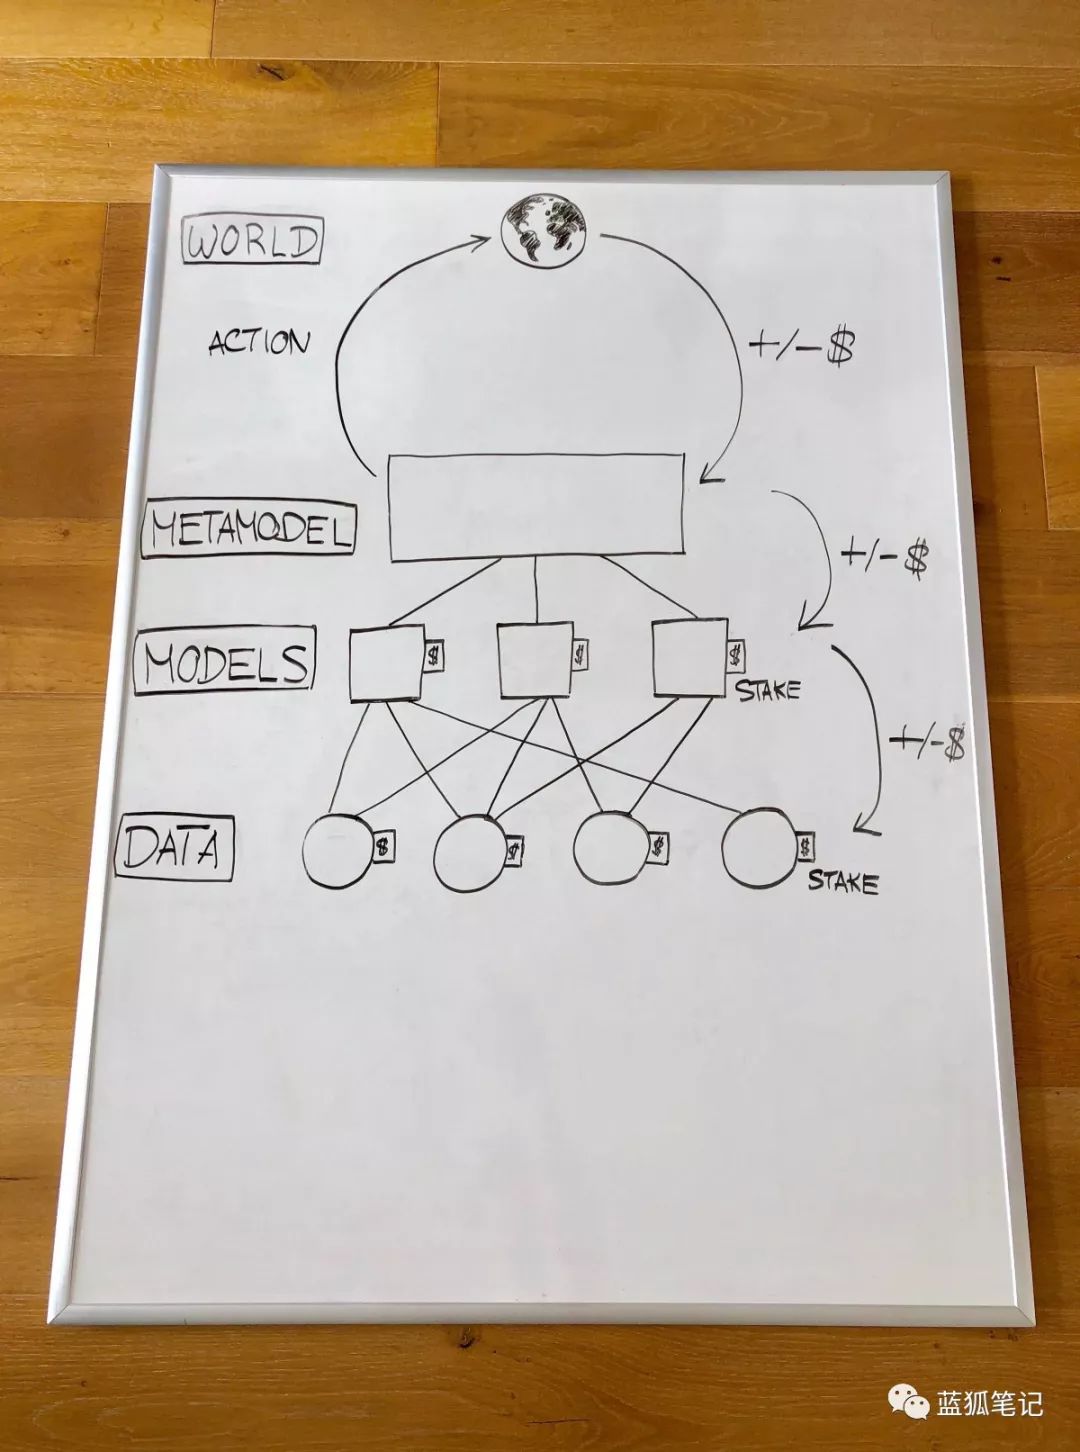 WORLD
ACTION
+/-$
METAMODEL
+/-$
MODELS
$
$
$
STAKE
+/-$
DATA
$
$
$
$
STAKE
蓝狐笔记